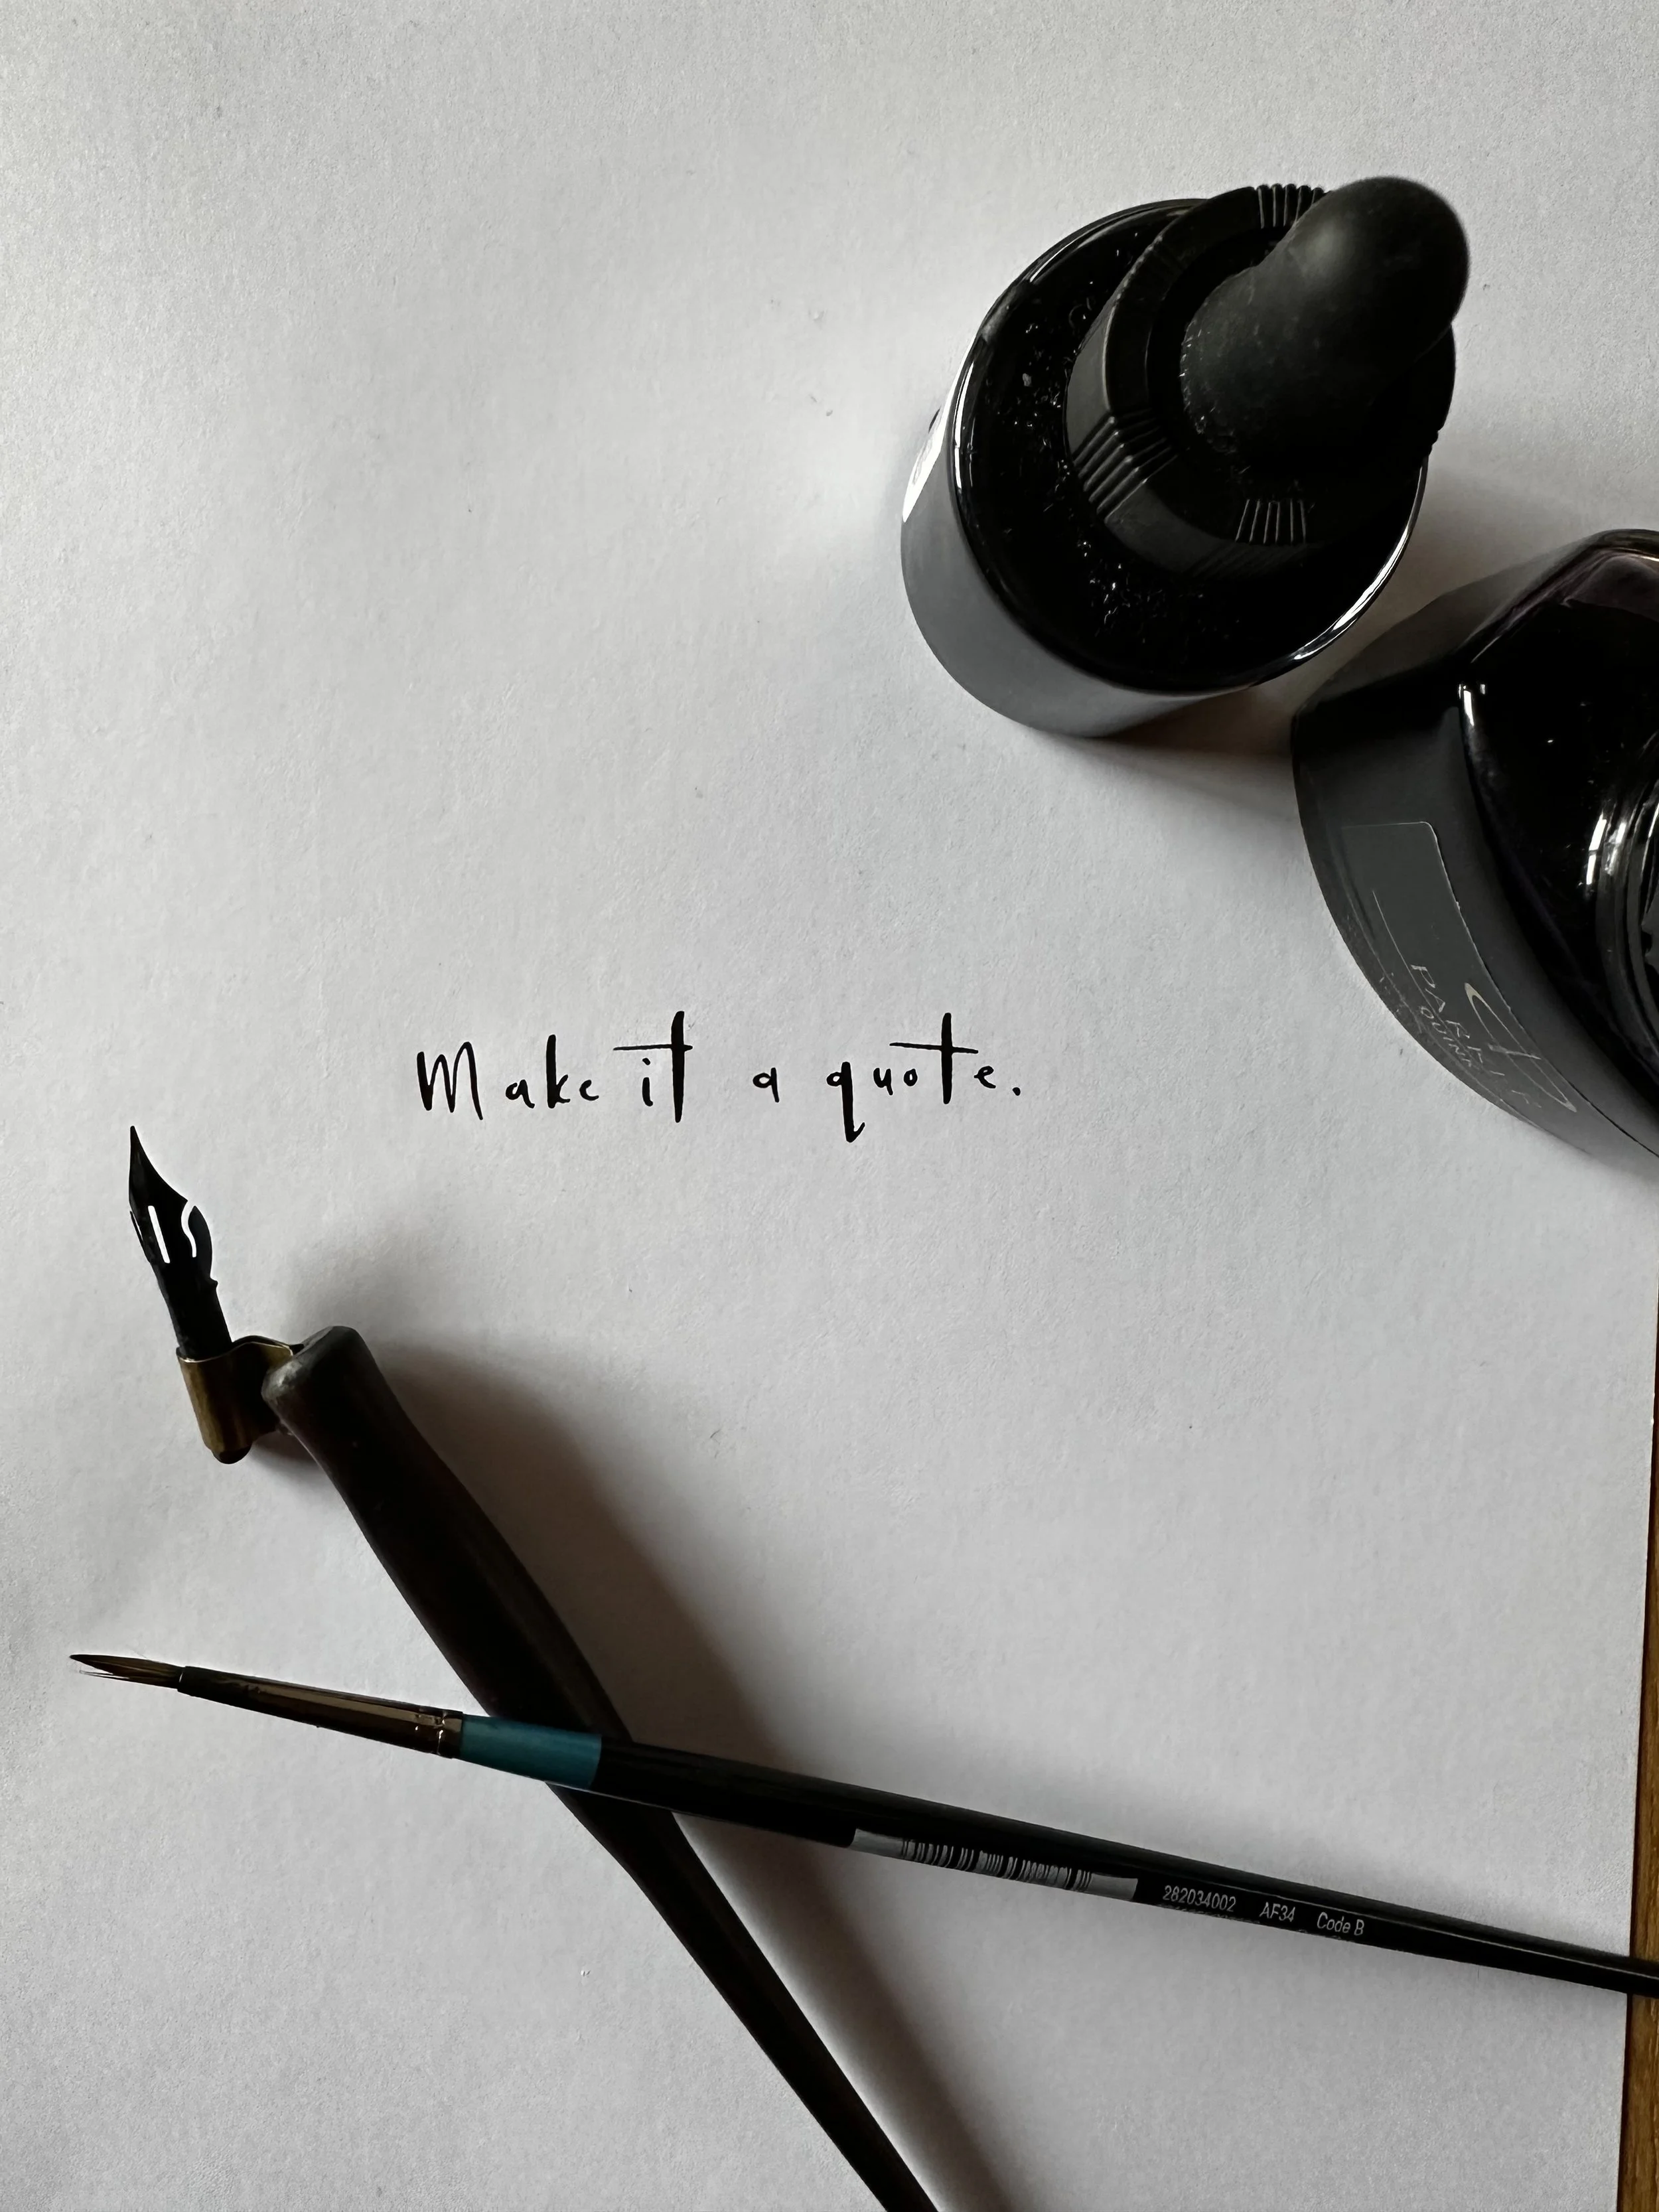 Make it a quote.
PARKER
QUINK
282034002 AF34 Code B